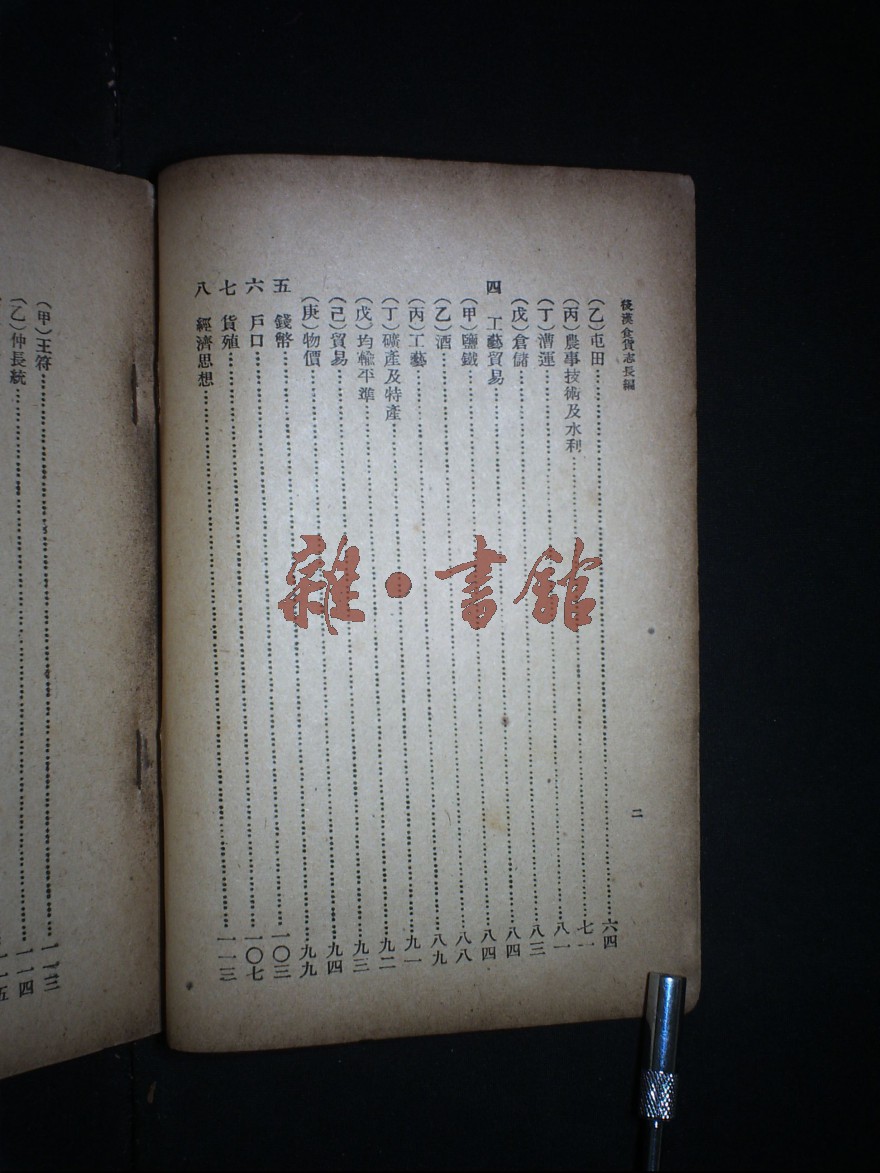 後漢食貨志長編
二
(乙)屯田……六四
(丙)農事技術及水利……七一
(丁)漕運……八一
(戊)倉儲……八三
四 工藝貿易……八四
(甲)鹽鐵……八四
(乙)酒……八八
(丙)工藝……八九
(丁)礦產及特產……九一
(戊)均輸平準……九二
(己)貿易……九三
(庚)物價……九四
五 錢幣……九九
六 戶口……一〇三
七 貨殖……一〇七
八 經濟思想……一一三
(甲)王符……一一三
(乙)仲長統……一一四
一一五
雜·書館